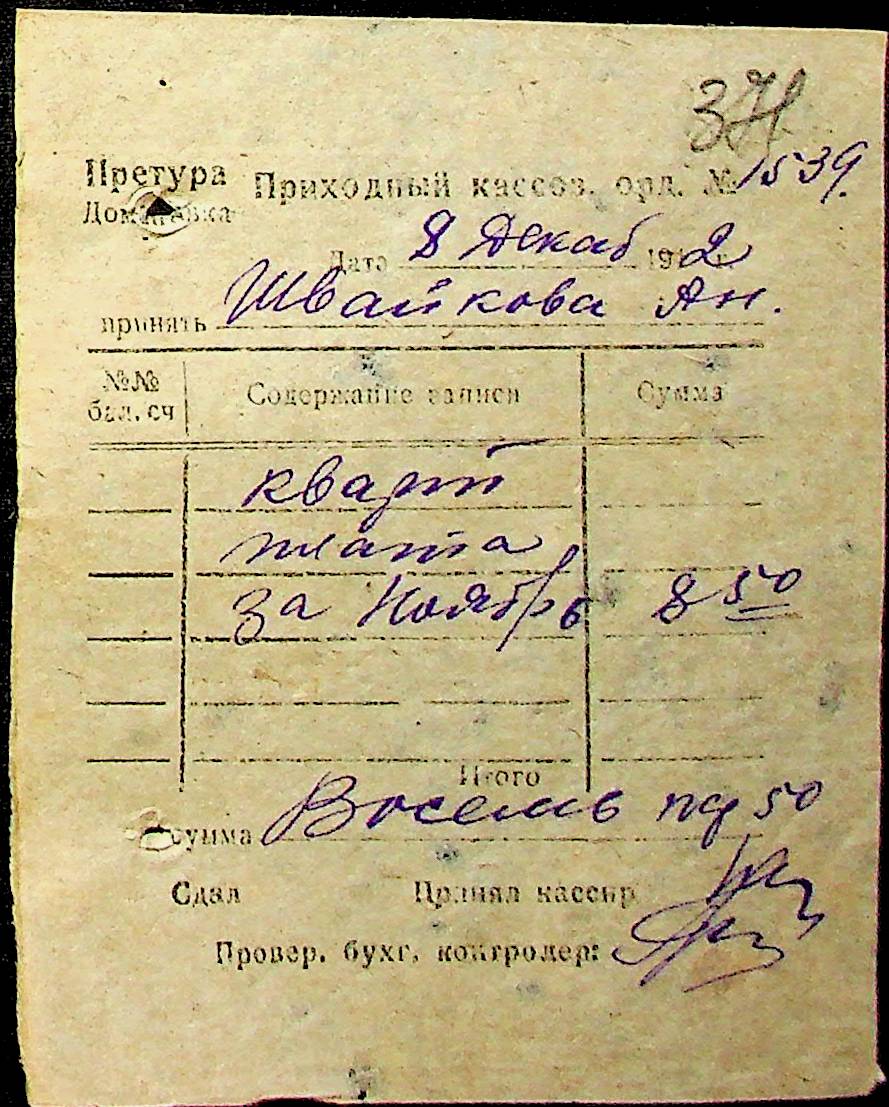 Претура Приходный кассов. орд. № 1539.
Дата 8 Декаб 1942
принять Швайкова Ан.
№№ бал. сч Содержание записи Сумма
кварт
плата
за Ноябрь 8 50
Итого
Сумма Восемь 50
Сдал Принял кассир
Провер. бухг. контролер: